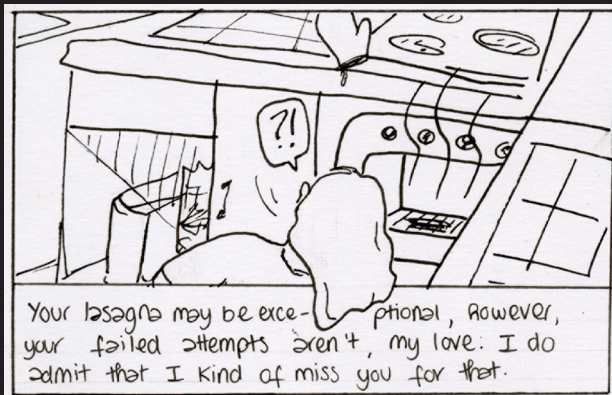 ?!
Your lasagna may be exce- ptional, however,
your failed attempts aren't, my love. I do
admit that I kind of miss you for that.